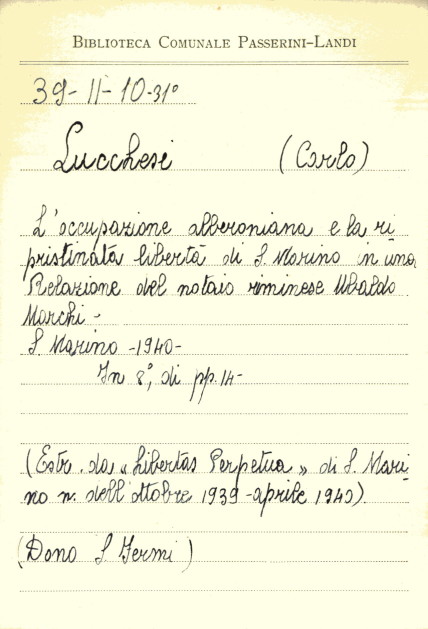 BIBLIOTECA COMUNALE PASSERINI-LANDI
39-11-10-31°
Lucchesi (Carlo)
L'occupazione alberoniana e la ri
pristinata libertà di S. Marino in una
Relazione del notaio riminese Ubaldo
Marchi -
S. Marino -1940-
In 8°, di pp. 14-
(Estr. da «Libertas Perpetua» di S. Mari
no n. dell'ottobre 1939 - aprile 1940).
(Dono S. Fermi)